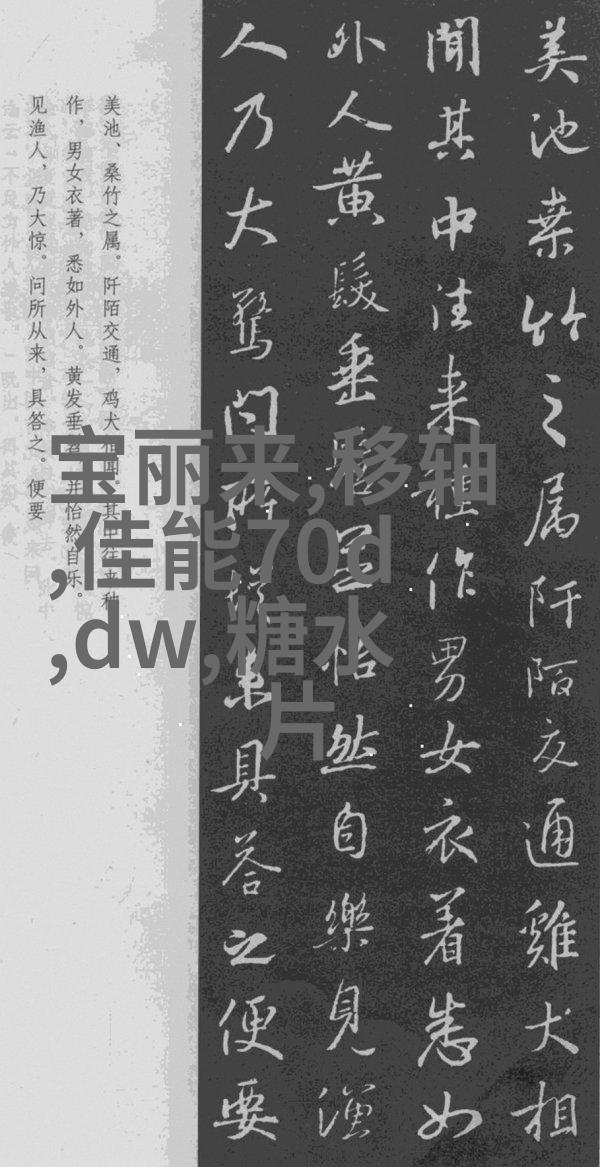 美池桒竹之属阡陌交通雞犬相
聞其中往来種作男女衣着悉如
外人黄髮垂髫並怡然自樂見漁
人乃大驚问所従来具答之便要
美池、桑竹之属。阡陌交通，鸡犬相闻。其中往来种
作，男女衣著，悉如外人。黄发垂髫，并怡然自乐。
见渔人，乃大惊。问所从来，具答之。便要
宝丽来,移轴
,佳能70d
,dw,糖水
片